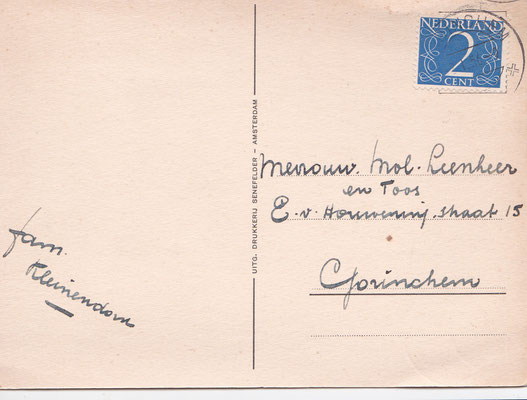 NEDERLAND
2
CENT
Mevrouw. Mol-Leenheer
en Toos
E. v. Houweningstraat 15
Gorinchem
fam.
Kleinendorst
UITG. DRUKKERIJ SENEFELDER - AMSTERDAM